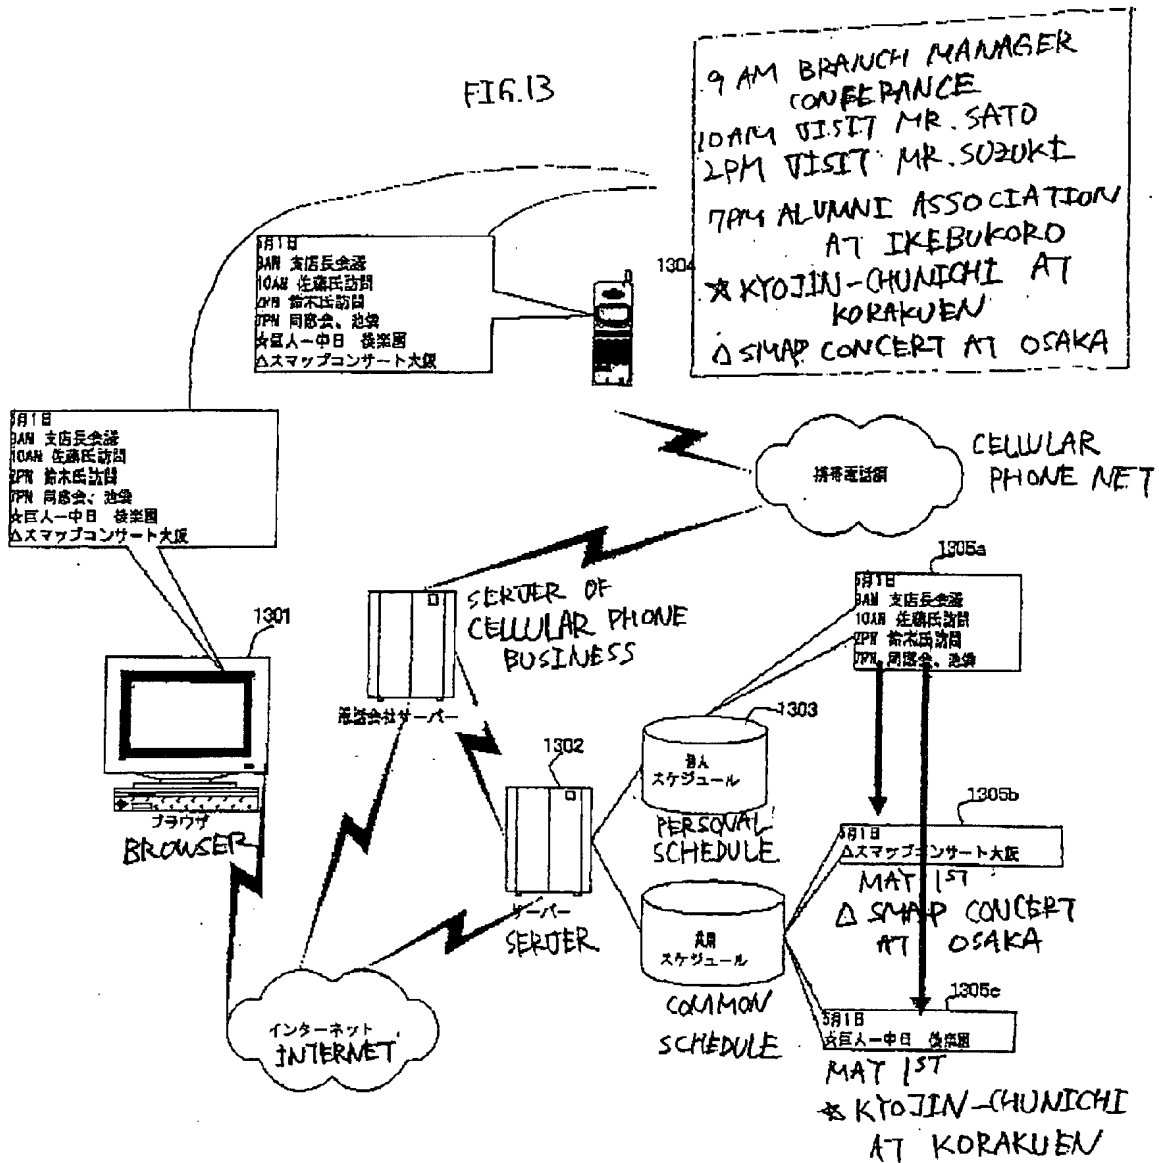 FIG.13
9 AM BRANCH MANAGER
CONFERANCE
10AM VISIT MR. SATO
2PM VISIT MR. SUZUKI
7PM ALUMNI ASSOCIATION
AT IKEBUKORO
☆KYOJIN-CHUNICHI AT
KORAKUEN
△SMAP CONCERT AT OSAKA
5月1日
9AM 支店長会議
10AM 佐藤氏訪問
2PM 鈴木氏訪問
7PM 同窓会、池袋
☆巨人ー中日 後楽園
△スマップコンサート大阪
1304
5月1日
9AM 支店長会議
10AM 佐藤氏訪問
2PM 鈴木氏訪問
7PM 同窓会、池袋
☆巨人ー中日 後楽園
△スマップコンサート大阪
携帯電話網
CELLULAR
PHONE NET
1305a
5月1日
9AM 支店長会議
10AM 佐藤氏訪問
2PM 鈴木氏訪問
7PM 同窓会、池袋
1301
SERVER OF
CELLULAR PHONE
BUSINESS
電話会社サーバー
1302
1303
個人
スケジュール
PERSONAL
SCHEDULE
ブラウザ
BROWSER
1305b
5月1日
△スマップコンサート大阪
MAY 1ST
△ SMAP CONCERT
AT OSAKA
サーバー
SERVER
共用
スケジュール
COMMON
SCHEDULE
1305c
5月1日
☆巨人ー中日 後楽園
MAY 1ST
☆ KYOJIN-CHUNICHI
AT KORAKUEN
インターネット
INTERNET